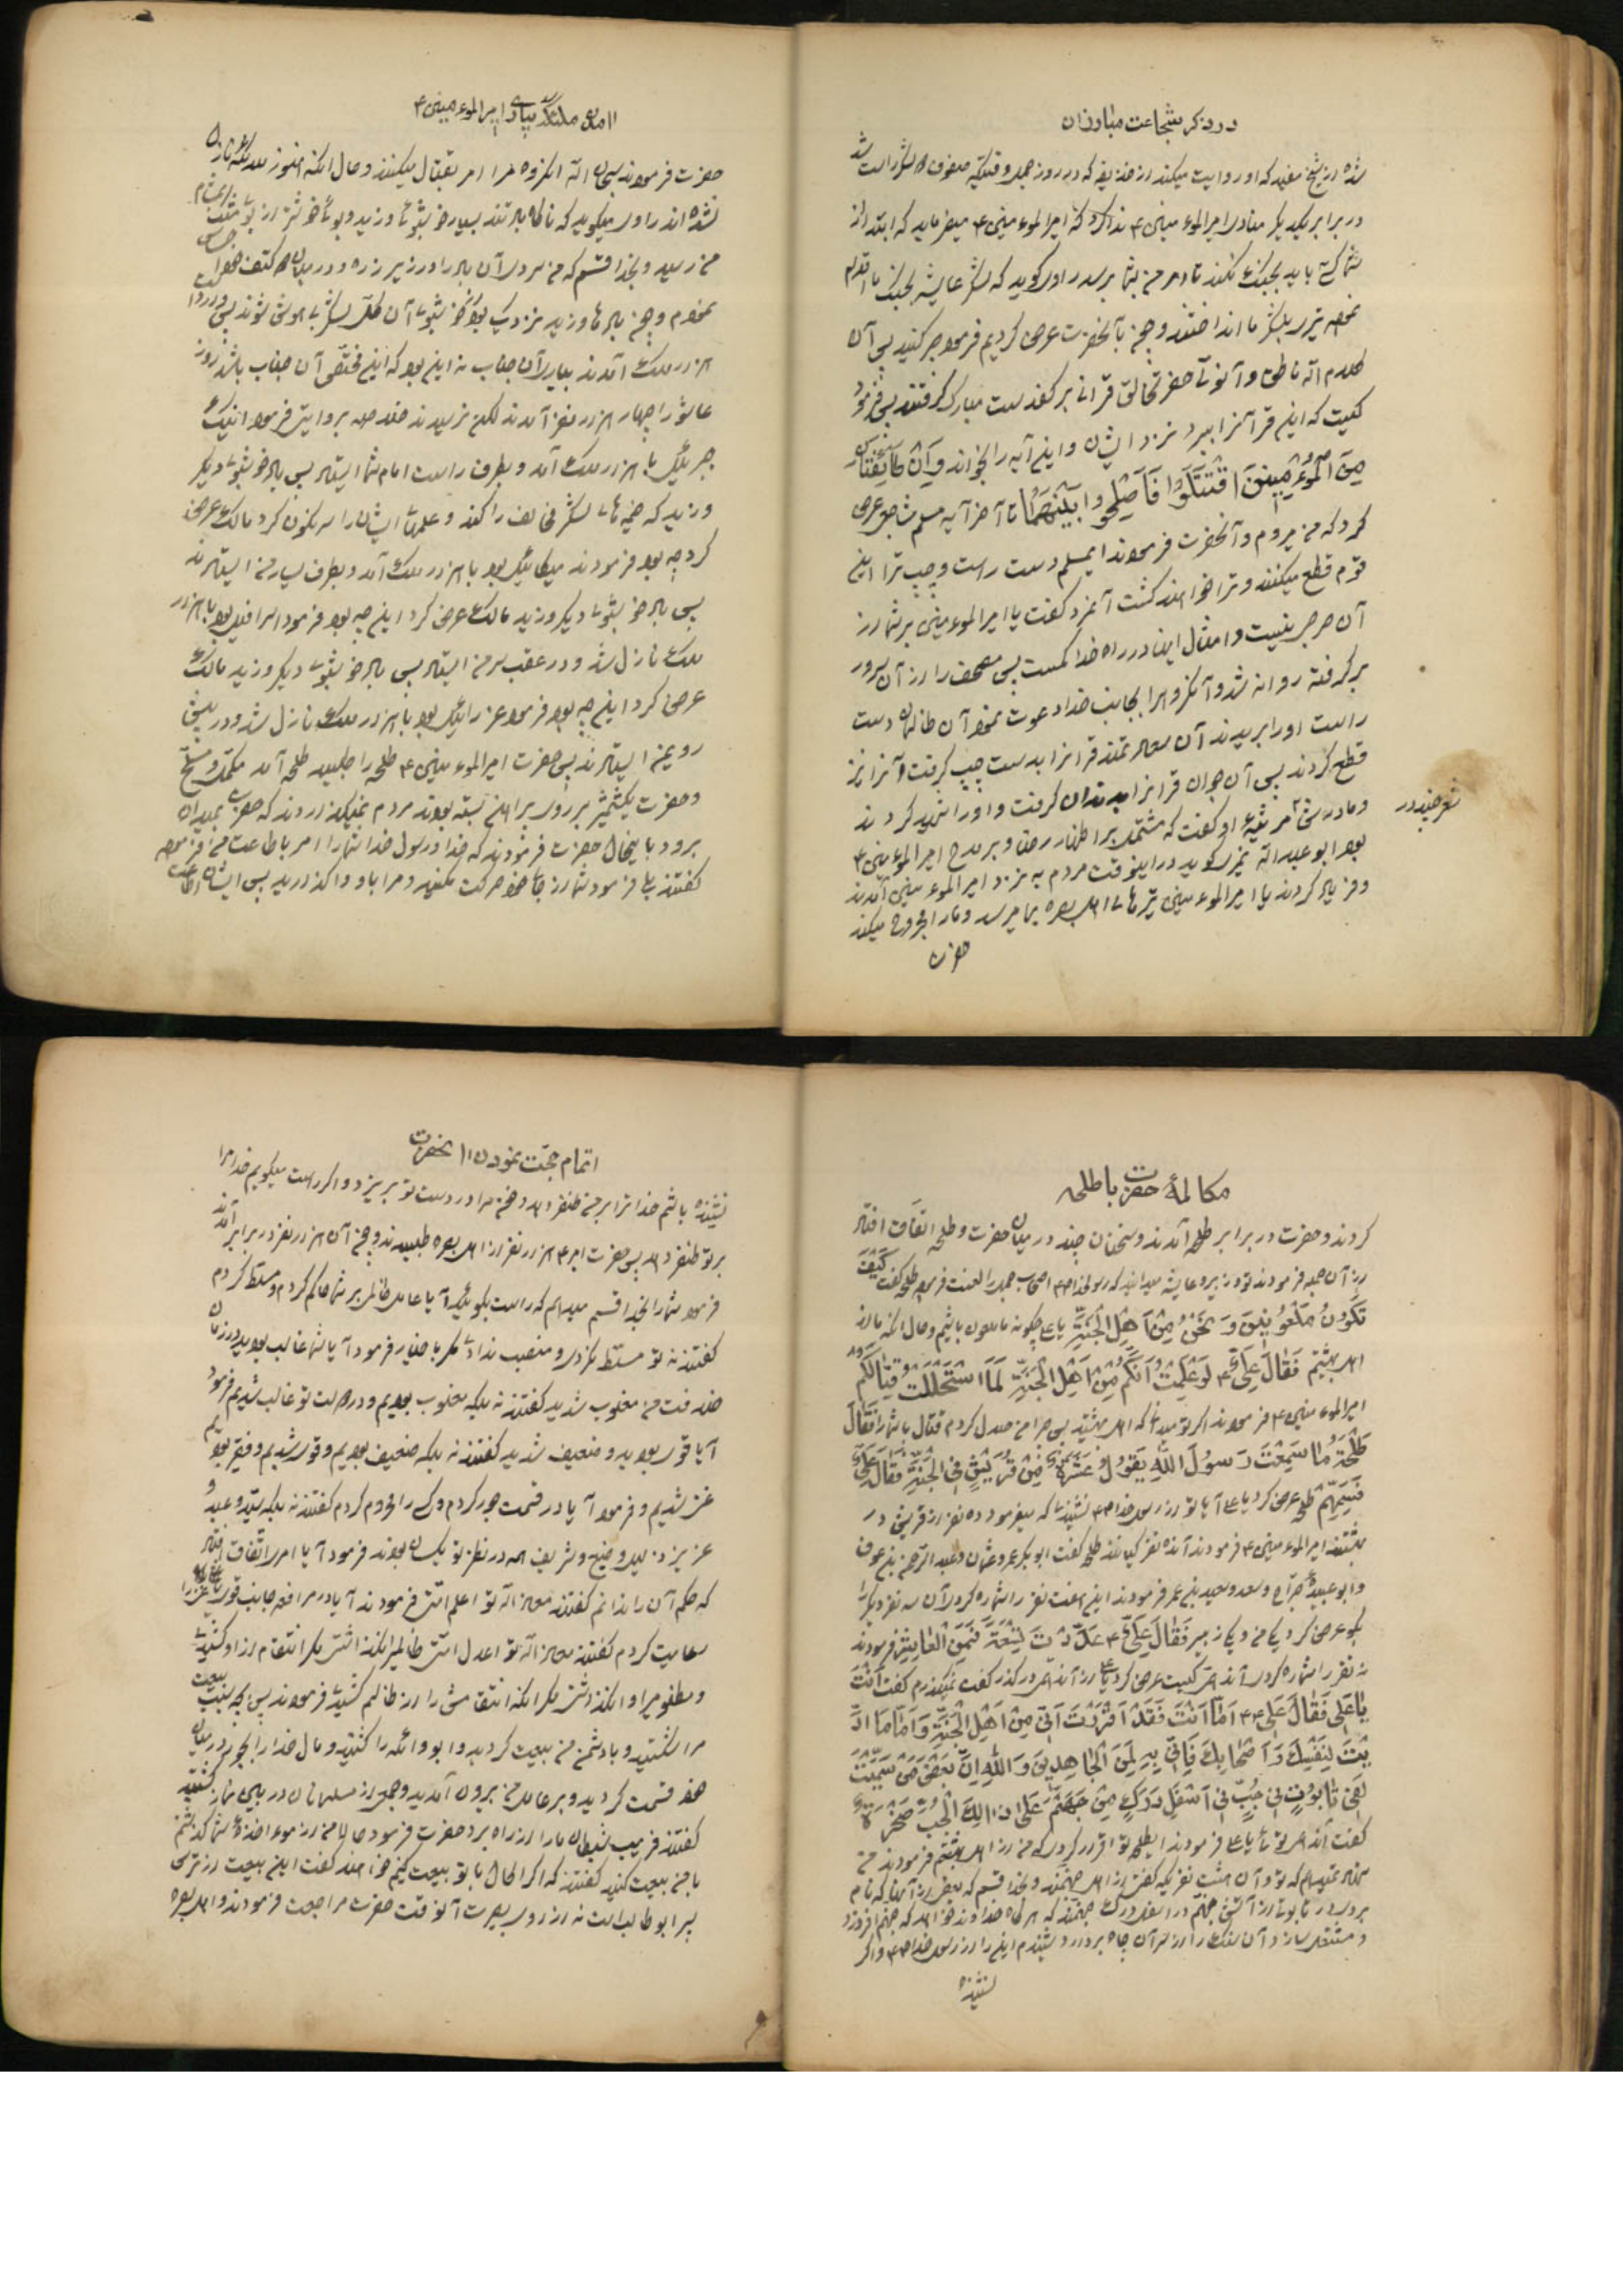 در ذکر شجاعت مبارزان
شده از شیخ مفید که او روایت میکند از حذیفه که در روز جمل وقتیکه صفوف لشکر راست شد
در برابر یکدیگر منادی امیرالموءمنین ۴ ندا کرد که امیرالموءمنین ۴ میفرماید که ابتدا از
شما کسی باید بجنگ نکند تا امر من بشما برسد راوی کوید که لشکر عایشه بجنک اقدام
نموده تیر بلشکر ما انداختند و همه بآنحضرت عرض کردیم فرمود صبر کنید پس آن
کلام الله ناطق و آنوقت حضرتعالی قرآنی بر کف دست مبارک گرفتند پس فرمود
کیست که این قرآنرا ببرد نزد ایشان و این آیه را بخواند وَاِن طَائِفَتانِ
مِنَ الموءمِنینَ اقتَتَلُوا فَاَصلِحُوا بَینَهُمَا تا آخر آیه مسلم مجاشع عرض
کرد که من میروم و آنحضرت فرمودند ایمسلم دست راست و چپ ترا این
قوم قطع میکنند و ترا خواهند کشت آنمرد کفت یا امیرالموءمنین بر شما از
آن حرجی نیست و امثال اینها در راه خدا کمست پس مصحف را از آن سرور
برگرفته روانه شد و آنکروه را بجانب خدا دعوت نمود آن ظالمان دست
راست او را بریدند آن سعادتمند قرآنرا بدست چپ گرفت و آنرا نیز
قطع کردند پس آن جوان قرآنرا بدندان گرفت و او را شهید کردند
و مادرش در مرثیه او کفت که مشتمل بر اظهار رضا و بر مدح امیرالموءمنین ۴
شعر چند در
بود ابوعبدالله نمیری کوید در اینوقت مردم به نزد امیرالموءمنین آمدند
و فریاد کردند یا امیرالموءمنین تیرهای اهل بصره بما میرسد و مارا مجروح میکند
حضرت
امدن ملائکه بیاری امیرالموءمنین ۴
حضرت فرمودند سبحان الله اینکروه مرا امر بقتال میکنند و حال آنکه هنوز ملائکه نازل
نشده اند راوی میکوید که ناکاه باد تند بسیار خوشبوئی وزید و بوی خوشتر از بوی مشک
من رسید و بخدا قسم که من سردی آن باد را در زیر زره و در میان دو کتف خود احساس
نمودم و چون بادها وزید نزدیک بود از خوشبوئی آن کل لشکر بیهوش شوند پس
هزار ملک آمدند بیاری آن جناب نه این بود که این مختص آن جناب باشد روز
عاشورا چهار هزار نفر آمدند لکن نرسیدند خلاصه بروایتی فرمود اینک
جبرئیل با هزار ملک آمد و بطرف راست امام شما ایستاد پس باد خوشبوی دیکر
وزید که خیمه های لشکر مخالف را کند و علمهای ایشان را سرنکون کرد مالک عرض
کرد چه بود فرمودند میکائیل بود با هزار ملک آمد و بطرف یسار من ایستادند
پس باد خوشبوی دیکر وزید مالک عرض کرد این چه بود فرمود اسرافیل بود با هزار
ملک نازل شد و در عقب سر من ایستاد پس باد خوشبوی دیکر وزید مالک
عرض کرد این چه بود فرمود عزرائیل بود با هزار ملک نازل شد و در پیش
روی من ایستادند پس حضرت امیرالموءمنین ۴ طلحه را طلبید طلحه آمد مکمل و مسلح
و حضرت یکشمشیر بر روی پیراهن بسته بودند مردم نمیکذاردند که حضرت بمیدان
برود باینحال حضرت فرمودند که خدا و رسول خدا شمارا امر باطاعت من فرموده
کفتند بلی فرمود شما از جای خود حرکت نکنید و مرا باو واکذارید پس ایشان اطاعت
مکالمهٔ حضرت باطلحه
کردند و حضرت در برابر طلحه آمدند و سخنان چند در میان حضرت و طلحه اتفاق افتاد
از آن جمله فرمودند تو و زبیر و عایشه میدانید که رسولخدا ص اصحاب جمل را لعنت فرمود طلحه کفت کَیفَ
نَکُونُ مَلعُونینَ وَ نَحنُ مِن اَهلِ الجَنَّةِ یا علی چکونه ما ملعون باشیم و حال آنکه ما از
اهل بهشتیم فَقالَ عَلِیٌّ ۴ لَو عَلِمتُ اَنَّکُم مِن اَهلِ الجَنَّةِ لَمَا استَحلَلتُ قِتالَکُم
امیرالموءمنین ۴ فرمودند اکر تو میدانی که اهل بهشتید پس چرا من حلال کردم قتال با شمارا فَقالَ
طَلحَةُ مَا سَمِعتَ رَسُولَ اللهِ یَقُولُ عَشَرَةٌ مِن قُرَیشٍ فِی الجَنَّةِ فَقالَ عَلِیٌّ
فَسَمِّهِم طلحه عرض کرد یا علی آیا تو از رسول خدا ص نشنیدی که میفرمود ده نفر از قریش در
بهشتند امیرالموءمنین ۴ فرمودند آنده نفر کیانند طلحه کفت ابوبکر و عمر و عثمان و عبدالرحمن بن عوف
و ابوعبیدهٔ جراح و سعد و سعید بن عمر فرمودند این هفت نفر را شماره کردی آن سه نفر دیکر را
بکو عرض کرد یکی من و یکی زبیر فَقالَ عَلِیٌّ ۴ عَدَّدتَ تِسعَةً فَمَنِ العاشِر فرمودند
نه نفر را شماره کردی آندهم کیست عرض کرد یا علی از آندهم در کذر کفت نمیکذرم کفت اَنتَ
یا عَلی فَقالَ عَلی ۴ اَمّا اَنتَ فَقَد اَقرَرتَ اَنّی مِن اَهلِ الجَنَّةِ وَ اَمّا مَا ادَّ
عَیتَ لِنَفسِکَ وَ اَصحابِکَ فَاِنّی بِهِ لَمِنَ الجاحِدینَ وَ اللهِ اِنَّ بَعضَ مَن سَمَّیتَ
لَفی تابُوتٍ فی جُبٍّ فی اَسفَلِ دَرَکٍ مِن جَهَنَّمَ عَلی ذالِکَ الجُبِّ صَخرَةٌ
کفت آندهم تو ئی یا علی فرمودند ایطلحه تو اقرار کردی که من از اهل بهشتم فرمودند من
و مشتعل سازد آن سنک را از سر آن چاه بردارد شنیدم این را از رسول خدا ص و اکر
نشنیده
اتمام حجت نمودن آنحضرت
نشنیده باشم خدا ترا بر من ظفر دهد و خون مرا در دست تو بریزد و اکر راست میکویم خدا مرا
بر تو ظفر دهد پس حضرت امیر ۴ هزار نفر از اهل بصره طلبیدند و چون آن هزار نفر در برابر آمدند
فرمود شما را بخدا قسم میدهم که راست بکوئید آیا عامل ظالم بر شما حاکم کردم و مسلط کردم
کفتند نه تو مسلط نکردی و منصب ندادی مکر باخیار فرمود آیا شما غالب بودید در زمان
خلافت من مغلوب شدید کفتند نه بلکه مغلوب بودیم و در دولت تو غالب شدیم فرمود
آیا قوی بودید و ضعیف شدید کفتند نه بلکه ضعیف بودیم و قوی شدیم و فقیر بودیم
غنی شدیم و فرمود آیا در قسمت جور کردم و کسی را محروم کردم کفتند نه بلکه سید و عبد و
عزیز و ذلیل و وضیع و شریف همه در نظر تو یکسان بودند فرمود آیا امری اتفاق افتاد
که حکم آن را ندانم کفتند معاذ الله تو اعلم امتی فرمودند آیا در مرافعه جانب قوی یا عزیز را
رعایت کردم کفتند معاذ الله تو اعدل امتی ظالمی را نکذاشتی مکر انتقام از او کشیدی
و مظلومی را وانکذاشتی مکر آنکه انتقامش را از ظالم کشیدی فرمودند پس بچه سبب بیعت
مرا شکستید و با دشمن من بیعت کردید و ابواب را کشتید و مال خدا را بجور در میان
خود قسمت کردید و بر عامل من بیرون آمدید و جمعی از مسلمانان در پی نماز کشتید
کفتند فریب شیطان مارا از راه برد حضرت فرمود حالا من از موءاخذهٔ شما کذشتم
با من بیعت کنید کفتند که اکر الحال با تو بیعت کنیم خواهند کفت این بیعت از ترس
پسر ابوطالب است نه از روی بصیرت آنوقت حضرت مراجعت فرمودند و اهل بصره